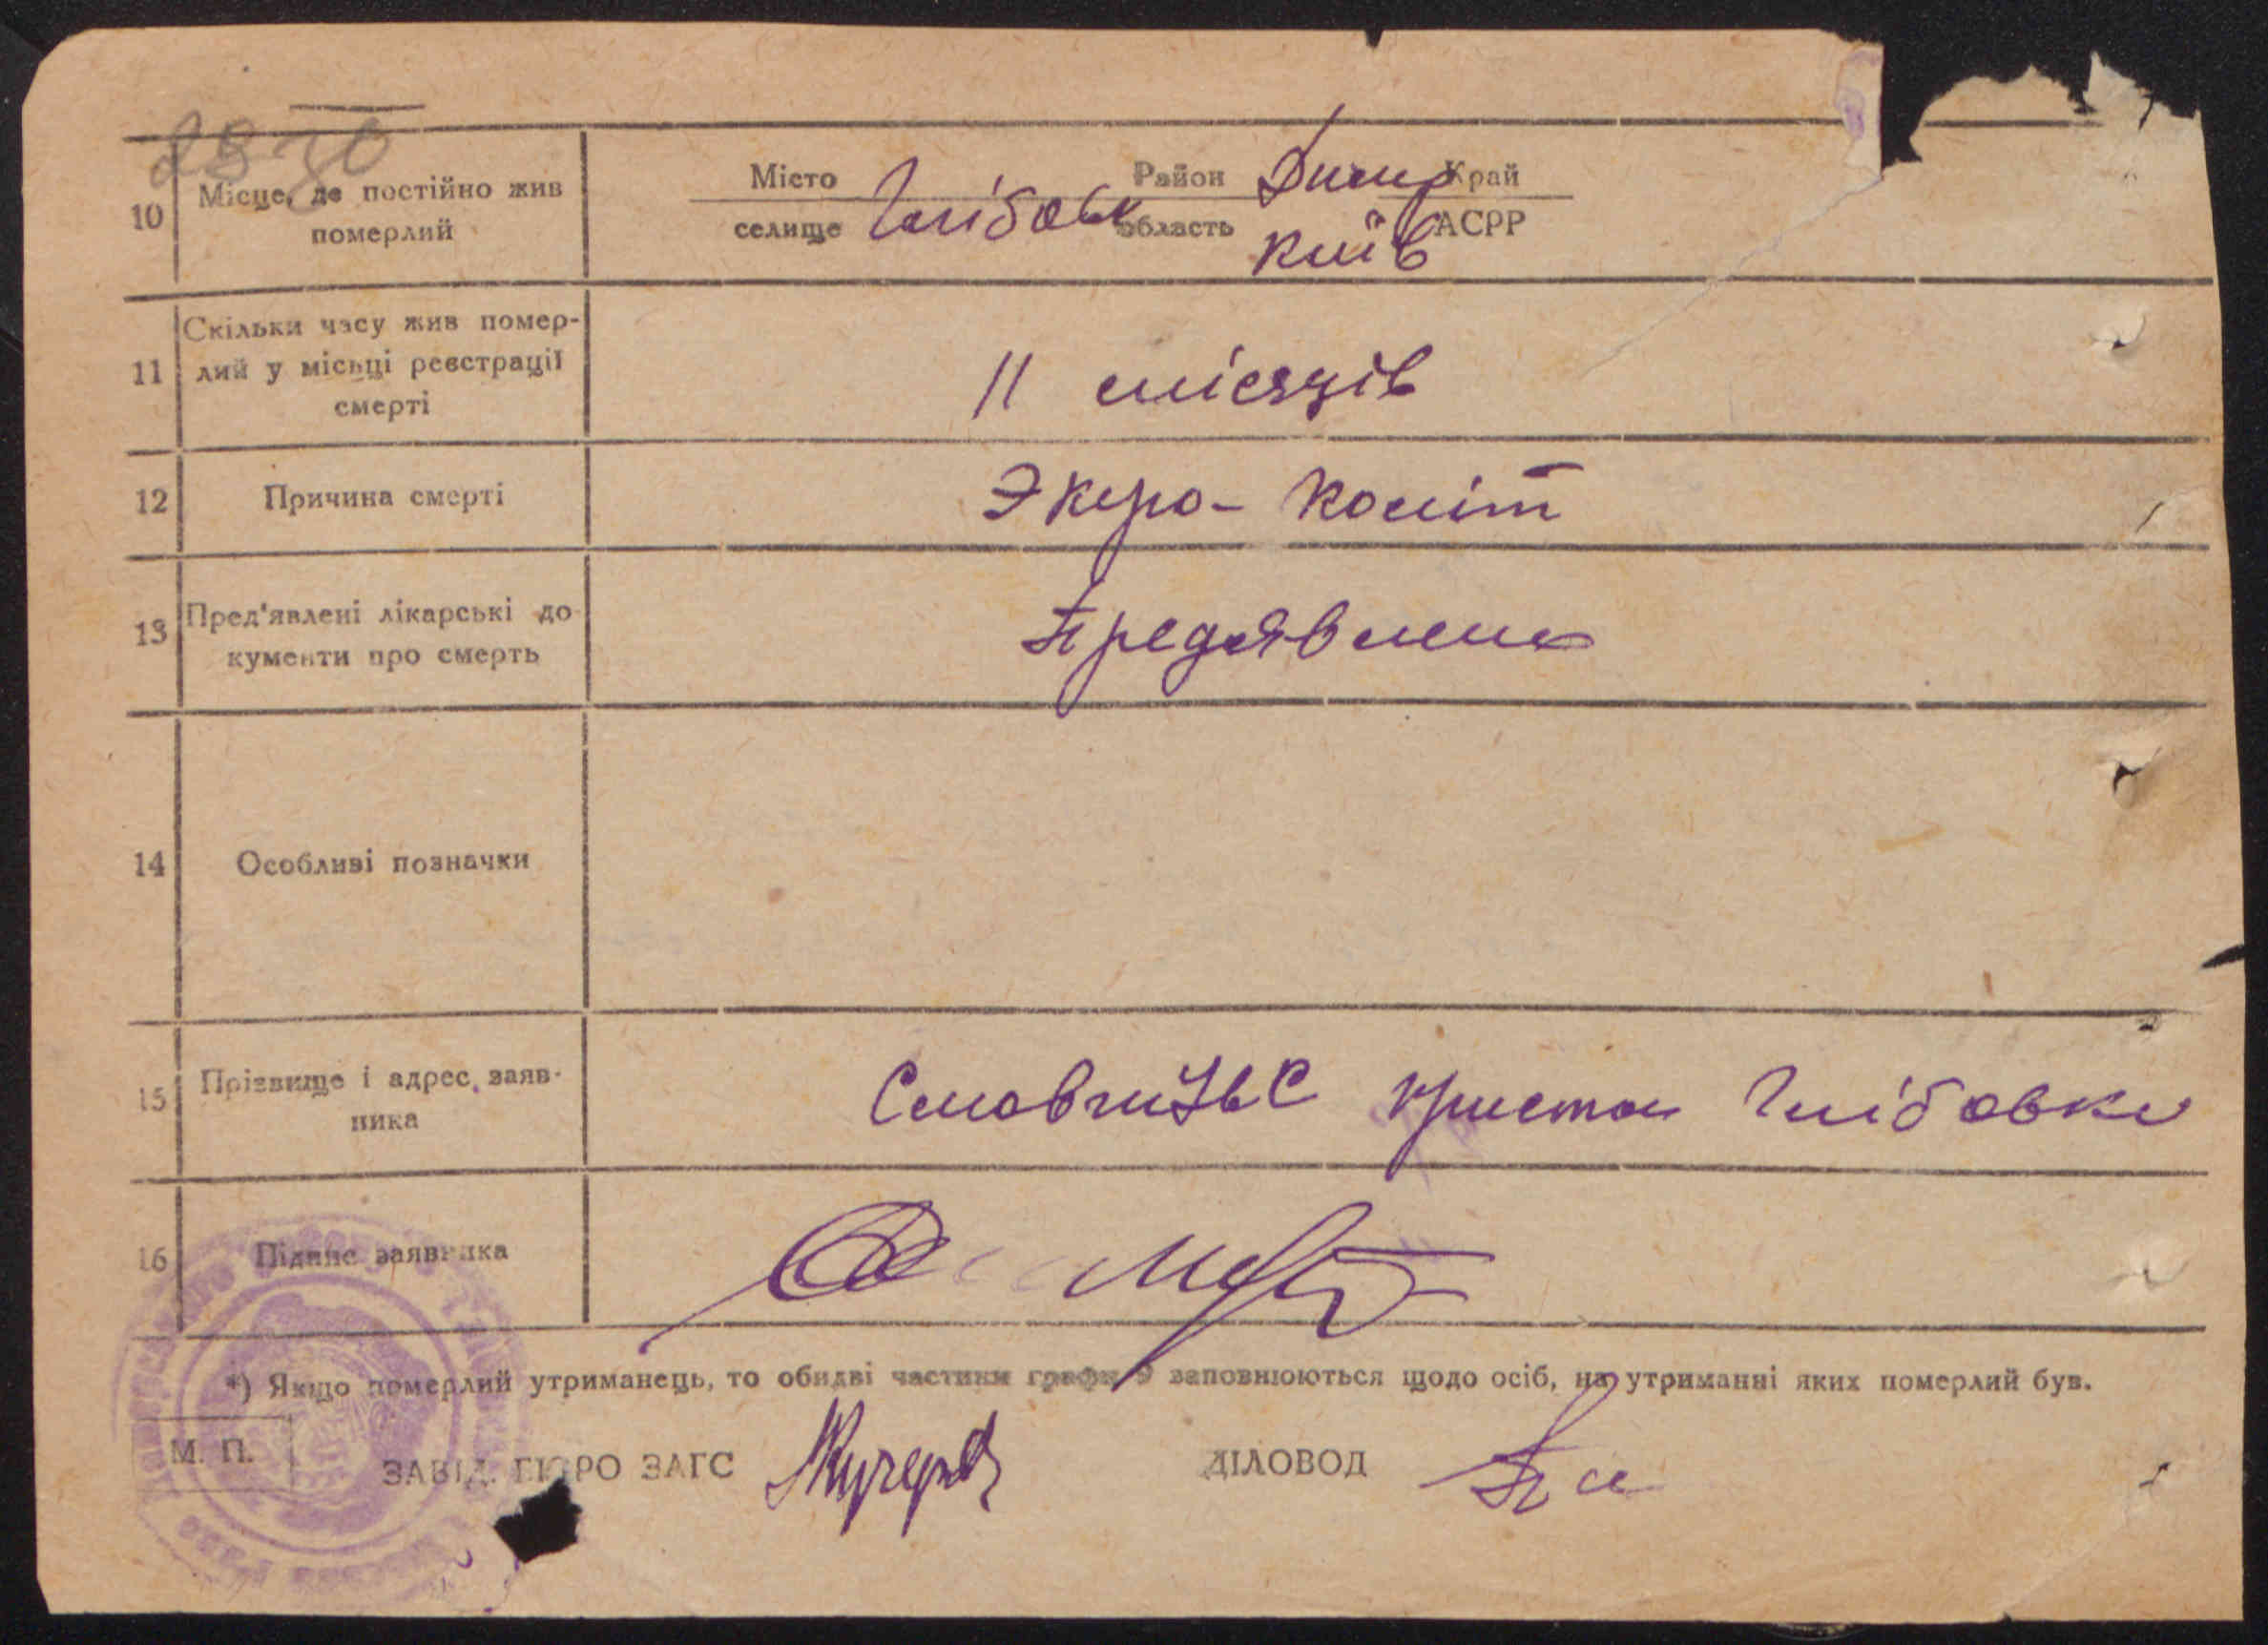 2830
10 Місце, де постійно жив померлий
Місто селище Глібовк Район Димир область Київ Край АСРР
11 Скільки часу жив помер-
лий у місьці реєстрації
смерті
11 місяців
12 Причина смерті
Экеро- Коліт
13 Пред'явлені лікарські до
кументи про смерть
Предявлені
14 Особливі позначки
15 Прізвище і адрес, заяв-
ника
Глібовка
16 Підпис заявника
*) Якщо померлий утриманець, то обидві частини графи 9 заповнюються щодо осіб, на утриманні яких померлий був.
М. П.
ЗАВІД. БЮРО ЗАГС
ДІЛОВОД